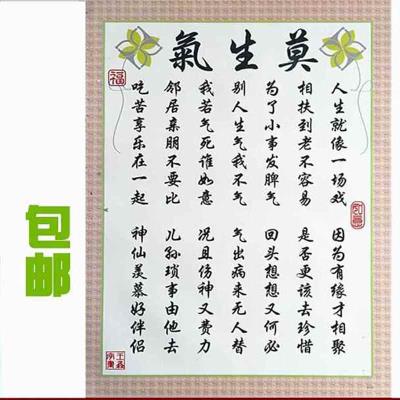 莫生氣
人生就像一场戏 因为有缘才相聚
相扶到老不容易 是否更该去珍惜
为了小事发脾气 回头想想又何必
别人生气我不气 气出病来无人替
我若气死谁如意 况且伤神又费力
邻居亲朋不要比 儿孙琐事由他去
吃苦享乐在一起 神仙羡慕好伴侣
福
包邮